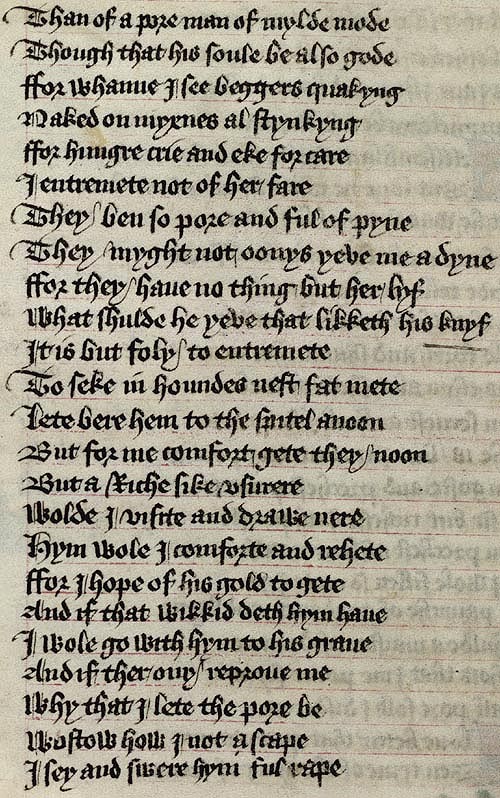 Than of a pore man of mylde mode
Though that his soule be also gode
ffor whanne I see beggers quakyng
Naked on myxenes al stynkyng
ffor hungre crie and eke for care
I entremete not of her fare
They ben so pore and ful of pyne
They myght not oonys yeve me a dyne
ffor they have no thing but her lyf
What shulde he yeve that likketh his knyf
It is but foly to entremete
To seke in houndes nest fat mete
Lete bere hem to the spitel anoon
But for me comfort gete they noon
But a Riche sike vsurere
Wolde I visite and drawe nere
Hym wole I comforte and rehete
ffor I hope of his gold to gete
And if that wikkid deth hym haue
I wole go with hym to his graue
And if ther ony reproue me
Why that I lete the pore be
Wostow how I not a scape
I sey and swere hym ful rape